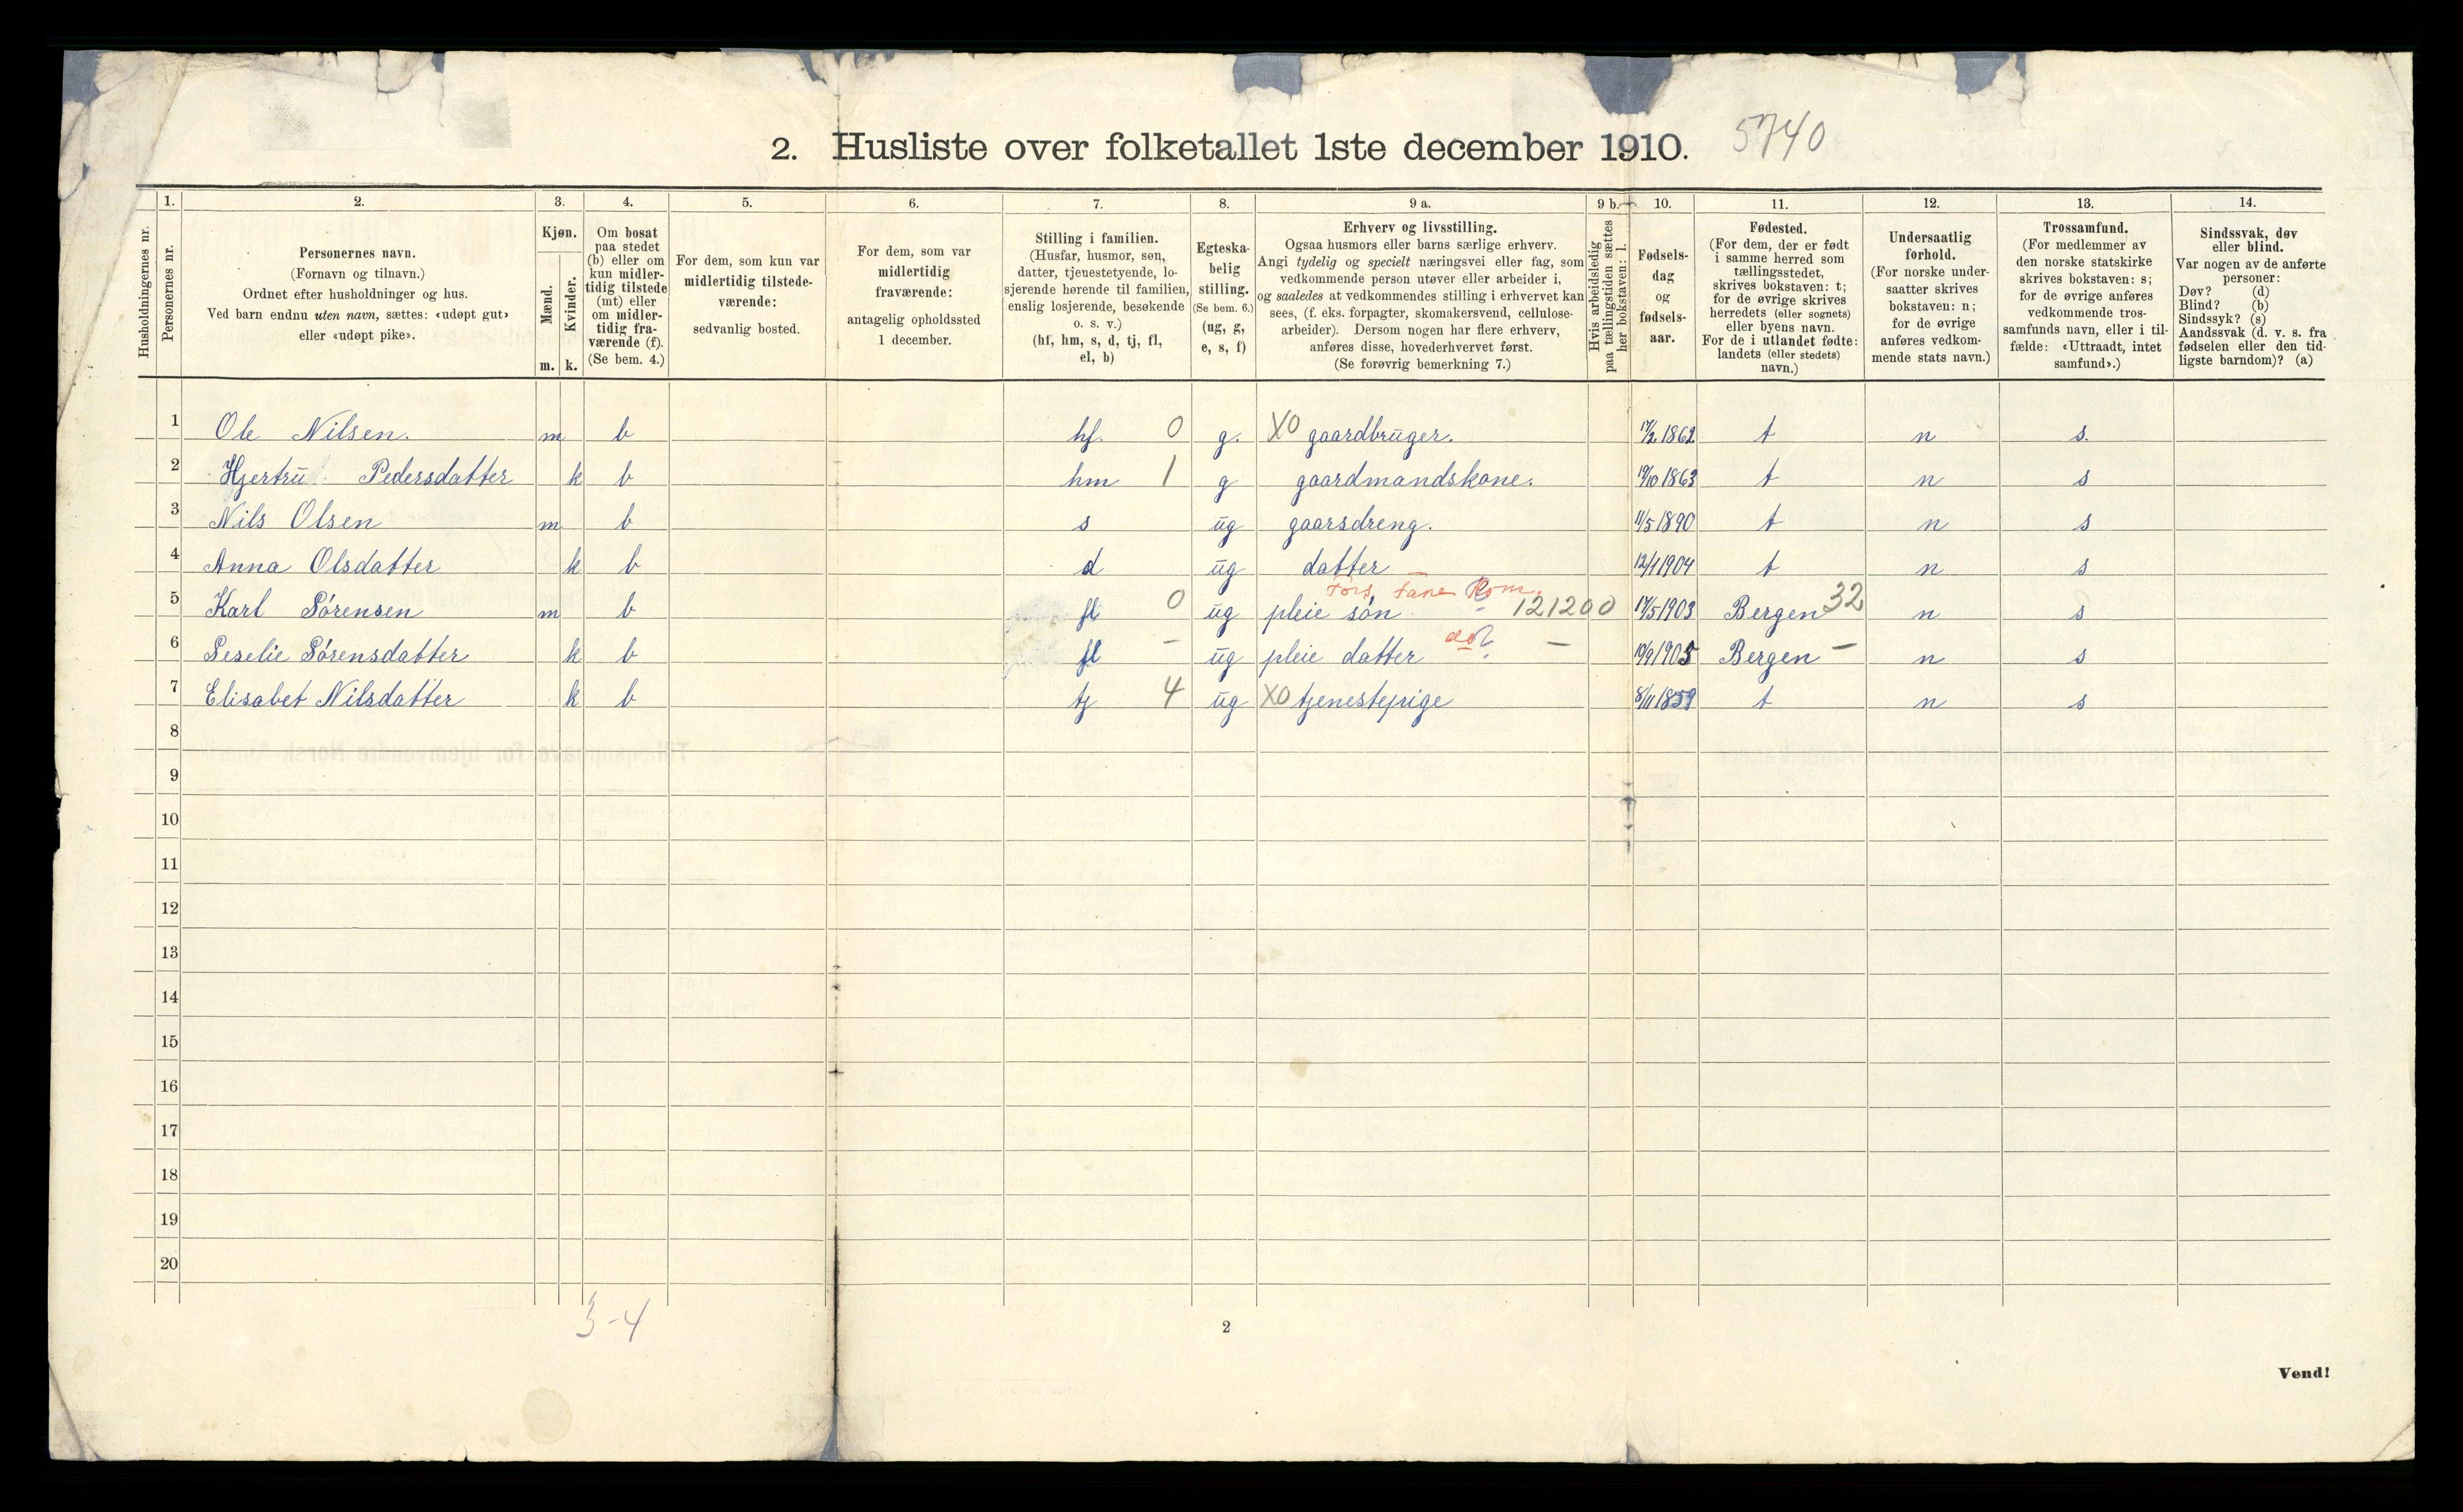 2. Husliste over folketallet 1ste december 1910. 5740
Husholdningernes nr.
1.
Personernes nr.
2.
Personernes navn.
(Fornavn og tilnavn.)
Ordnet efter husholdninger og hus.
Ved barn endnu uten navn, sættes: «udøpt gut»
eller «udøpt pike».
3.
Kjøn.
Mænd.
m.
Kvinder.
k.
4.
Om bosat
paa stedet
(b) eller om
kun midler-
tidig tilstede
(mt) eller
om midler-
tidig fra-
værende (f).
(Se bem. 4.)
5.
For dem, som kun var
midlertidig tilstede-
værende:
sedvanlig bosted.
6.
For dem, som var
midlertidig
fraværende:
antagelig opholdssted
1 december.
7.
Stilling i familien.
(Husfar, husmor, søn,
datter, tjenestetyende, lo-
sjerende hørende til familien,
enslig losjerende, besøkende
o. s. v.)
(hf, hm, s, d, tj, fl,
el, b)
8.
Egteska-
belig
stilling.
(Se bem. 6.)
(ug, g,
e, s, f)
9 a.
Erhverv og livsstilling.
Ogsaa husmors eller barns særlige erhverv.
Angi tydelig og specielt næringsvei eller fag, som
vedkommende person utøver eller arbeider i,
og saaledes at vedkommendes stilling i erhvervet kan
sees, (f. eks. forpagter, skomakersvend, cellulose-
arbeider). Dersom nogen har flere erhverv,
anføres disse, hovederhvervet først.
(Se forøvrig bemerkning 7.)
9 b.
Hvis arbeidsledig
paa tællingstiden sættes
her bokstaven: l.
10.
Fødsels-
dag
og
fødsels-
aar.
11.
Fødested.
(For dem, der er født
i samme herred som
tællingsstedet,
skrives bokstaven: t;
for de øvrige skrives
herredets (eller sognets)
eller byens navn.
For de i utlandet fødte:
landets (eller stedets)
navn.)
12.
Undersaatlig
forhold.
(For norske under-
saatter skrives
bokstaven: n;
for de øvrige
anføres vedkom-
mende stats navn.)
13.
Trossamfund.
(For medlemmer av
den norske statskirke
skrives bokstaven: s;
for de øvrige anføres
vedkommende tros-
samfunds navn, eller i til-
fælde: «Uttraadt, intet
samfund».)
14.
Sindssvak, døv
eller blind.
Var nogen av de anførte
personer:
Døv? (d)
Blind? (b)
Sindssyk? (s)
Aandssvak (d. v. s. fra
fødselen eller den tid-
ligste barndom)? (a)
1 Ole Nilsen. m b hf. 0 g. X0 gaardbruger. 17/2 1862 t n s.
2 Hjertru Pedersdatter k b hm 1 g gaardmandskone. 19/10 1863 t n s
3 Nils Olsen m b s ug gaarsdreng. 11/5 1890 t n s
4 Anna Olsdatter k b d ug datter 12/1 1904 t n s
Fors. Fane Kom.
5 Karl Sørensen m b fl 0 ug pleie søn 121200 17/5 1903 Bergen 32 n s
6 Seselie Sørensdatter k b fl - ug pleie datter do? - 19/9 1905 Bergen - n s
7 Elisabet Nilsdatter k b tj 4 ug X0 tjenestepige 8/11 1859 t n s
8
9
10
11
12
13
14
15
16
17
18
19
20
3-4
2
Vend!